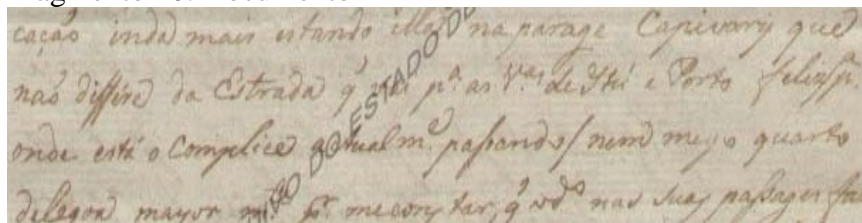 cação inda mais estando elle na parage Capivary que
naõ differe da Estrada q̃ vai p.ª as V.as de Itú e Porto feliz/p.
onde está o Complice actualm.e passando/ nem meyo quarto
delegoa mayor m.te p.r meconstar, q̃ nas suas passages